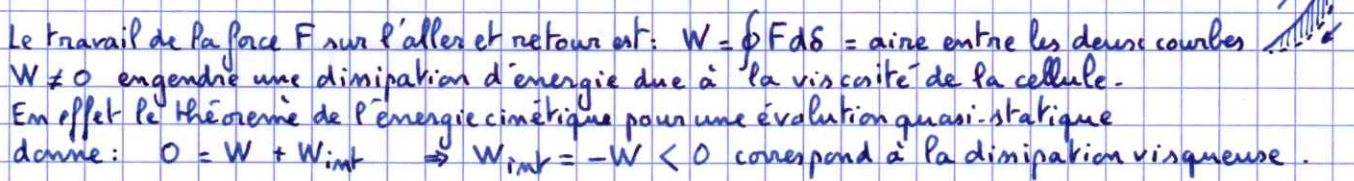 Le travail de la force F sur l'aller et retour est : W = ∮ F dδ = aire entre les deux courbes
W ≠ 0 engendre une dissipation d'énergie due à la viscosité de la cellule.
En effet le théorème de l'énergie cinétique pour une évolution quasi-statique
donne : 0 = W + Wint ⇒ Wint = -W < 0 correspond à la dissipation visqueuse.